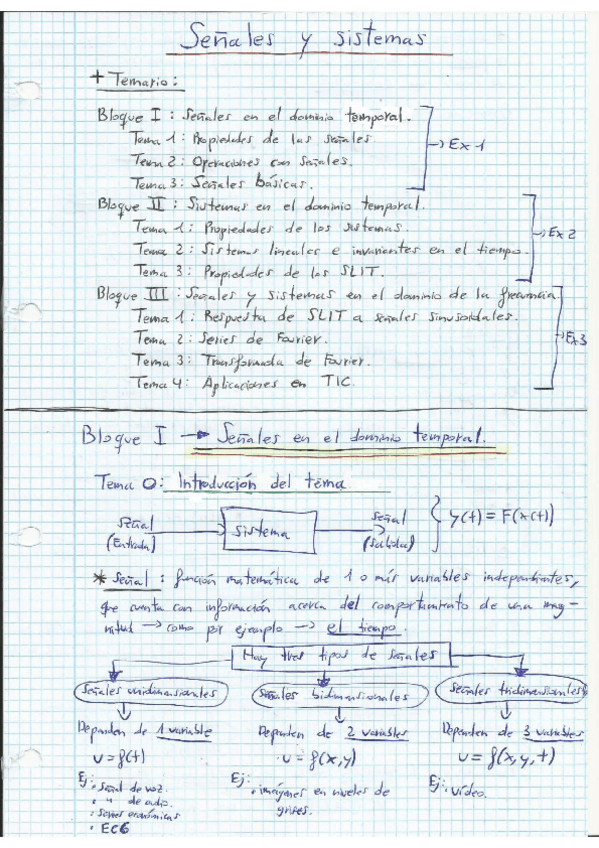 Señales y sistemas
+ Temario:
Bloque I: Señales en el dominio temporal.
Tema 1: Propiedades de las señales
Tema 2: Operaciones con señales.
Tema 3: Señales básicas.
→ Ex 1
Bloque II: Sistemas en el dominio temporal.
Tema 1: Propiedades de los sistemas.
Tema 2: Sistemas lineales e invariantes en el tiempo.
Tema 3: Propiedades de los SLIT.
→ Ex 2
Bloque III: Señales y sistemas en el dominio de la frecuencia.
Tema 1: Respuesta de SLIT a señales sinusoidales.
Tema 2: Series de Fourier.
Tema 3: Transformada de Fourier.
Tema 4: Aplicaciones en TIC.
→ Ex 3
Bloque I → Señales en el dominio temporal.
Tema 0: Introducción del tema
Señal (Entrada) → Sistema → Señal (Salida) { y(t) = F(x(t))
* Señal: función matemática de 1 o más variables independientes,
que cuenta con información acerca del comportamiento de una mag-
nitud → como por ejemplo → el tiempo.
Hay tres tipos de señales
Señales unidimensionales
Depende de 1 variable
u = f(t)
Ej: • Señal de voz.
• " de audio.
• Series económicas
• ECG
Señales bidimensionales
Dependen de 2 variables
u = f(x,y)
Ej: • imágenes en niveles de
grises.
Señales tridimensionales
Dependen de 3 variables
u = f(x,y,t)
Ej: • vídeo.